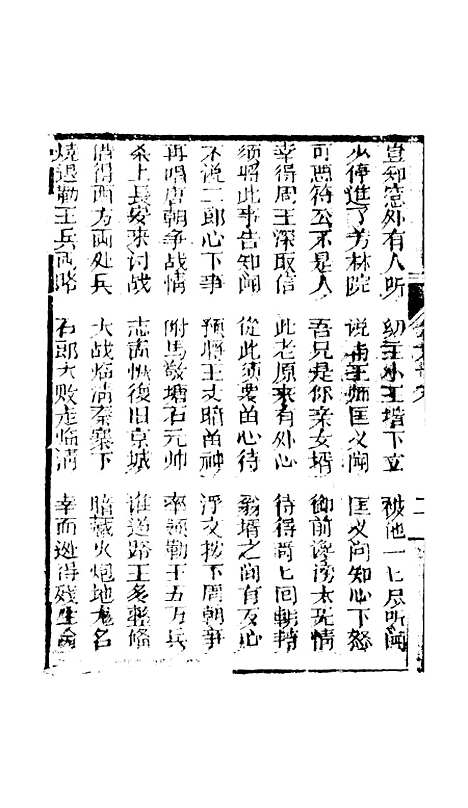 豈知窓外有人听 幼主小王堦下立 被他一七尽听闻
少停進了芳林院 说与王姬匡义闻 匡义问知心下怒
可恶符公不是人 吾兄是你亲女壻 御前谗谤太无情
幸得周王深取信 此老原来有处心 待得哥七回朝轉
须将此事告知闻 從此须要畄心待 翁壻之间有反心
不说二郎心下事 预将王文暗畄神 浮文按下唐朝事
再唱唐朝争战情 附馬敬塘石元帅 率领勤王五万兵
杀上長安来讨战 志啚恢復旧京城 谁道路王多整備
借得西方两处兵 大战临清秦寨下 暗藏火炮地龙名
燒退勤王兵两路 石郎大败走临清 幸而逃得残生命
二